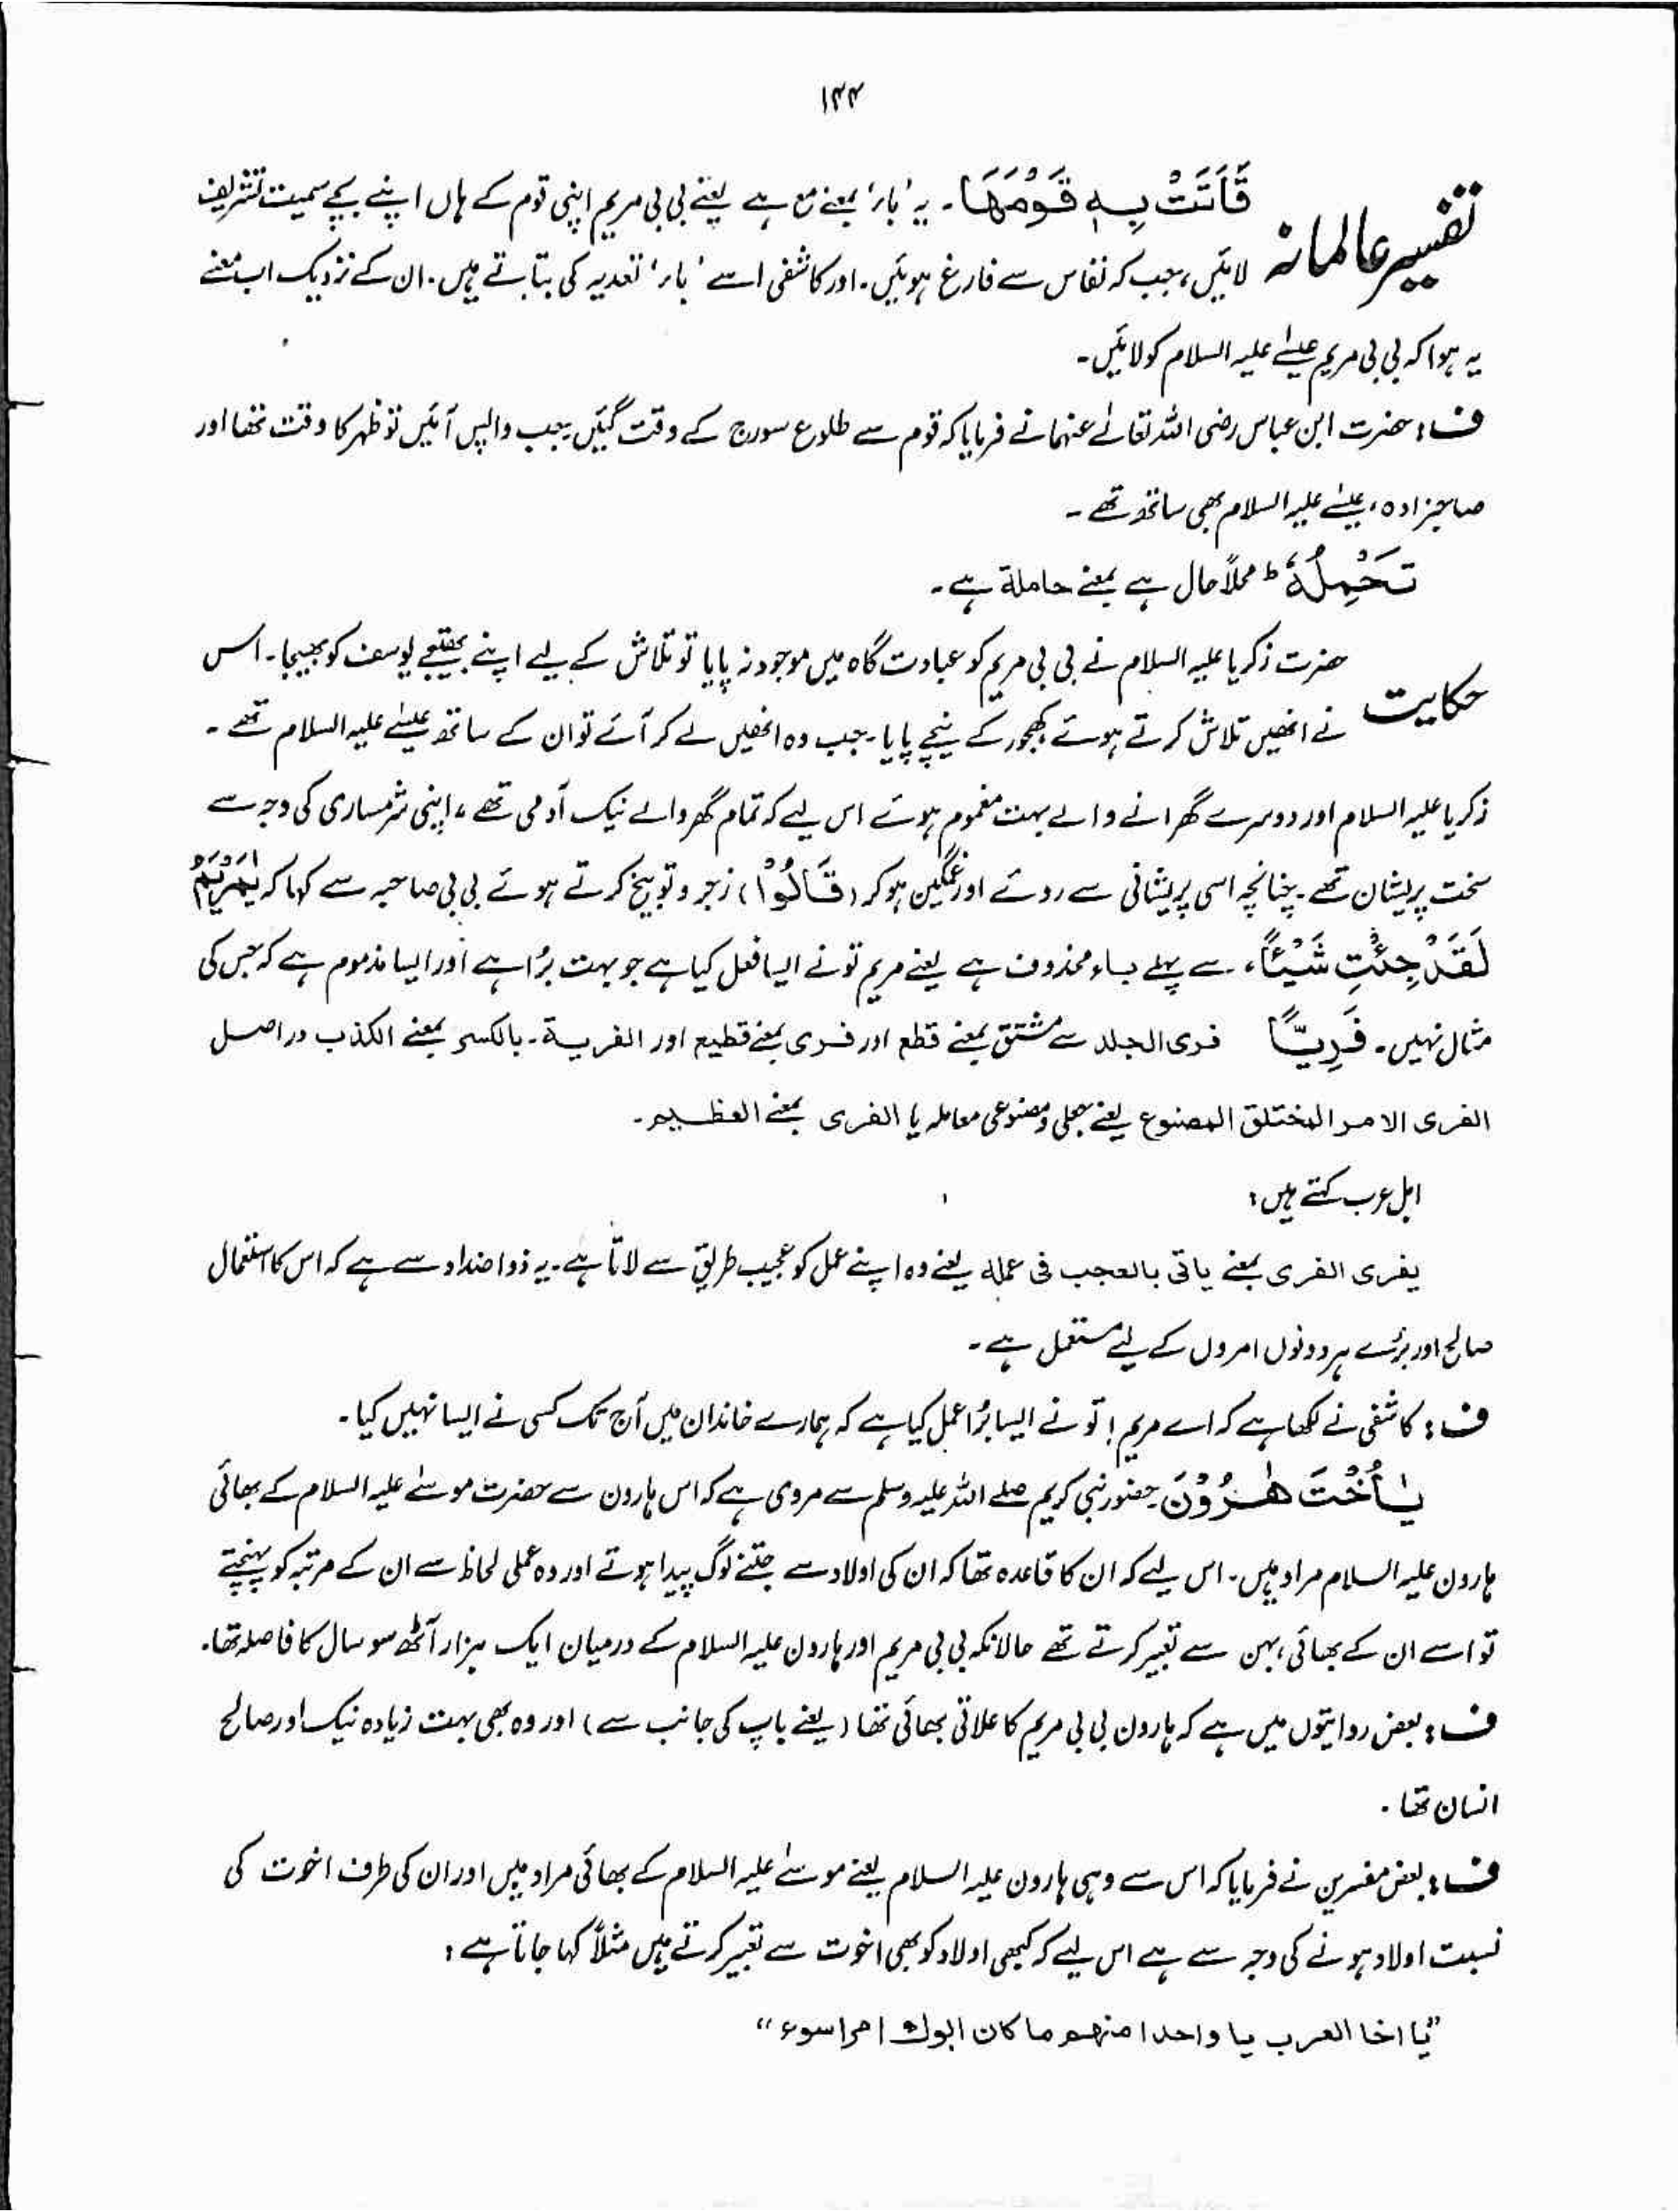 ۱۴۴
تفسیر عالمانہ
فَاَتَتْ بِهٖ قَوْمَهَا۔ یہ 'باء' بمعنے مع ہے یعنے بی بی مریم اپنی قوم کے ہاں اپنے بچے سمیت تشریف
لائیں، جب کہ نفاس سے فارغ ہوئیں۔ اور کاشفی اسے 'باء' تعدیہ کی بتاتے ہیں۔ ان کے نزدیک اب معنے
یہ ہوا کہ بی بی مریم عیسٰے علیہ السلام کو لائیں۔
ف: حضرت ابن عباس رضی اللہ تعالٰے عنہما نے فرمایا کہ قوم سے طلوع سورج کے وقت گئیں جب واپس آئیں تو ظہر کا وقت تھا اور
صاحبزادہ، عیسٰے علیہ السلام بھی ساتھ تھے۔
تَحْمِلُهٗ ط محلاً حال ہے بمعنے حاملة ہے۔
حکایت
حضرت زکریا علیہ السلام نے بی بی مریم کو عبادت گاہ میں موجود نہ پایا تو تلاش کے لیے اپنے بھتیجے یوسف کو بھیجا۔ اس
نے انھیں تلاش کرتے ہوئے کھجور کے نیچے پایا۔ جب وہ انھیں لے کر آئے تو ان کے ساتھ عیسٰے علیہ السلام تھے۔
زکریا علیہ السلام اور دوسرے گھرانے والے بہت مغموم ہوئے اس لیے کہ تمام گھر والے نیک آدمی تھے، اپنی شرمساری کی وجہ سے
سخت پریشان تھے۔ چنانچہ اسی پریشانی سے روئے اور غمگین ہو کر (قَالُوْا) زجر و توبیخ کرتے ہوئے بی بی صاحبہ سے کہا کہ یٰمَرْیَمُ
لَقَدْ جِئْتِ شَیْئًا، سے پہلے باء محذوف ہے یعنے مریم تو نے ایسا فعل کیا ہے جو بہت بُرا ہے اور ایسا مذموم ہے کہ جس کی
مثال نہیں۔ فَرِیًّا فری الجلد سے مشتق بمعنے قطع اور فری بمعنے قطیع اور الفریة۔ بالکسر بمعنے الکذب دراصل
الفری الامر المختلق المصنوع یعنے جعلی و مصنوعی معاملہ یا الفری بمعنے العظیم۔
اہل عرب کہتے ہیں:
یفری الفری بمعنے یاتی بالعجب فی عملہ یعنے وہ اپنے عمل کو عجیب طریق سے لاتا ہے۔ یہ ذو اضداد سے ہے کہ اس کا استعمال
صالح اور بُرے ہر دونوں امروں کے لیے مستعمل ہے۔
ف: کاشفی نے لکھا ہے کہ اے مریم! تو نے ایسا بُرا عمل کیا ہے کہ ہمارے خاندان میں آج تک کسی نے ایسا نہیں کیا۔
یٰۤاُخْتَ هٰرُوْنَ حضور نبی کریم صلے اللہ علیہ وسلم سے مروی ہے کہ اس ہارون سے حضرت موسٰے علیہ السلام کے بھائی
ہارون علیہ السلام مراد ہیں۔ اس لیے کہ ان کا قاعدہ تھا کہ ان کی اولاد سے جتنے لوگ پیدا ہوتے اور وہ عملی لحاظ سے ان کے مرتبہ کو پہنچتے
تو اسے ان کے بھائی، بہن سے تعبیر کرتے تھے حالانکہ بی بی مریم اور ہارون علیہ السلام کے درمیان ایک ہزار آٹھ سو سال کا فاصلہ تھا۔
ف: بعض روایتوں میں ہے کہ ہارون بی بی مریم کا علاتی بھائی تھا (یعنے باپ کی جانب سے) اور وہ بھی بہت زیادہ نیک اور صالح
انسان تھا۔
ف: بعض مفسرین نے فرمایا کہ اس سے وہی ہارون علیہ السلام یعنے موسٰے علیہ السلام کے بھائی مراد ہیں اور ان کی طرف اخوت کی
نسبت اولاد ہونے کی وجہ سے ہے اس لیے کہ کبھی اولاد کو بھی اخوت سے تعبیر کرتے ہیں مثلاً کہا جاتا ہے:
"یا اخا العرب یا واحدا منہم ما کان ابوك امرا سوء"